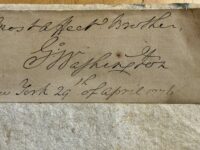 most affect Brother,
Go Washington
New York 29th of April 1776